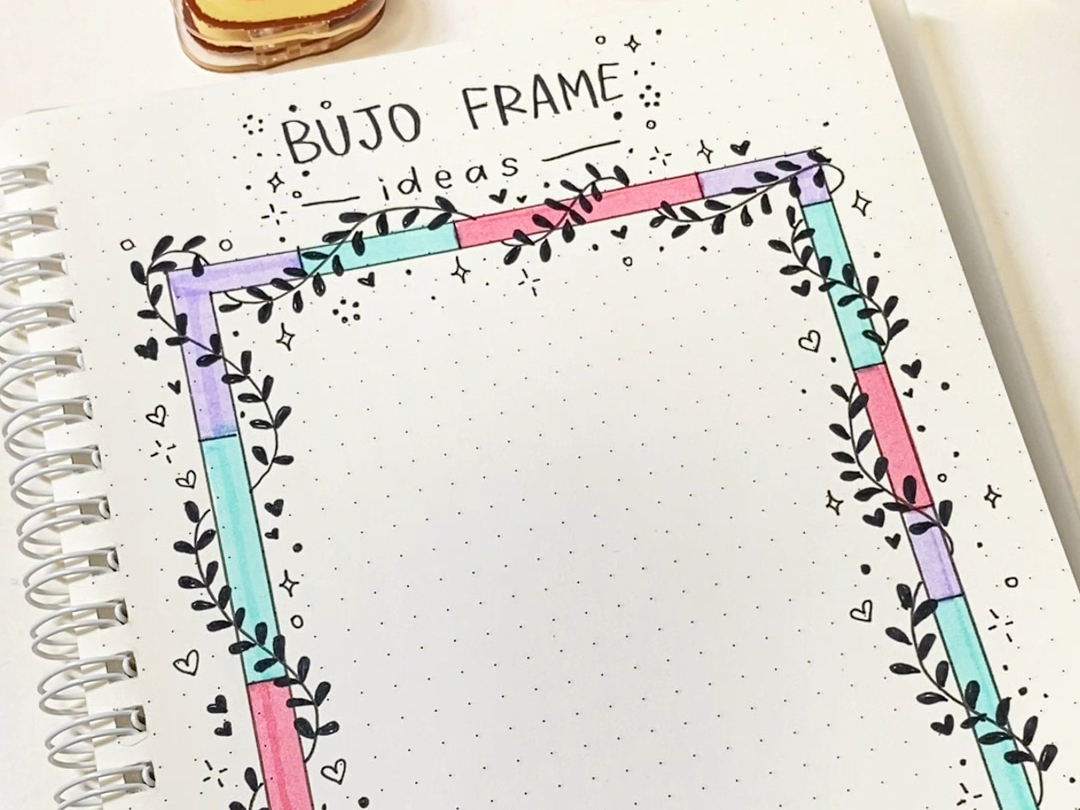 BUJO FRAME
ideas